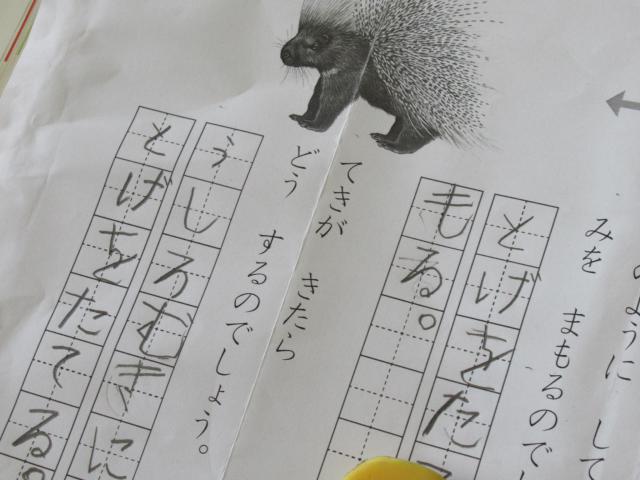 のように して
みを まもるのでし
とげをた
もる。
てきが きたら
どう するのでしょう。
うしろむきに
とげをたてる。